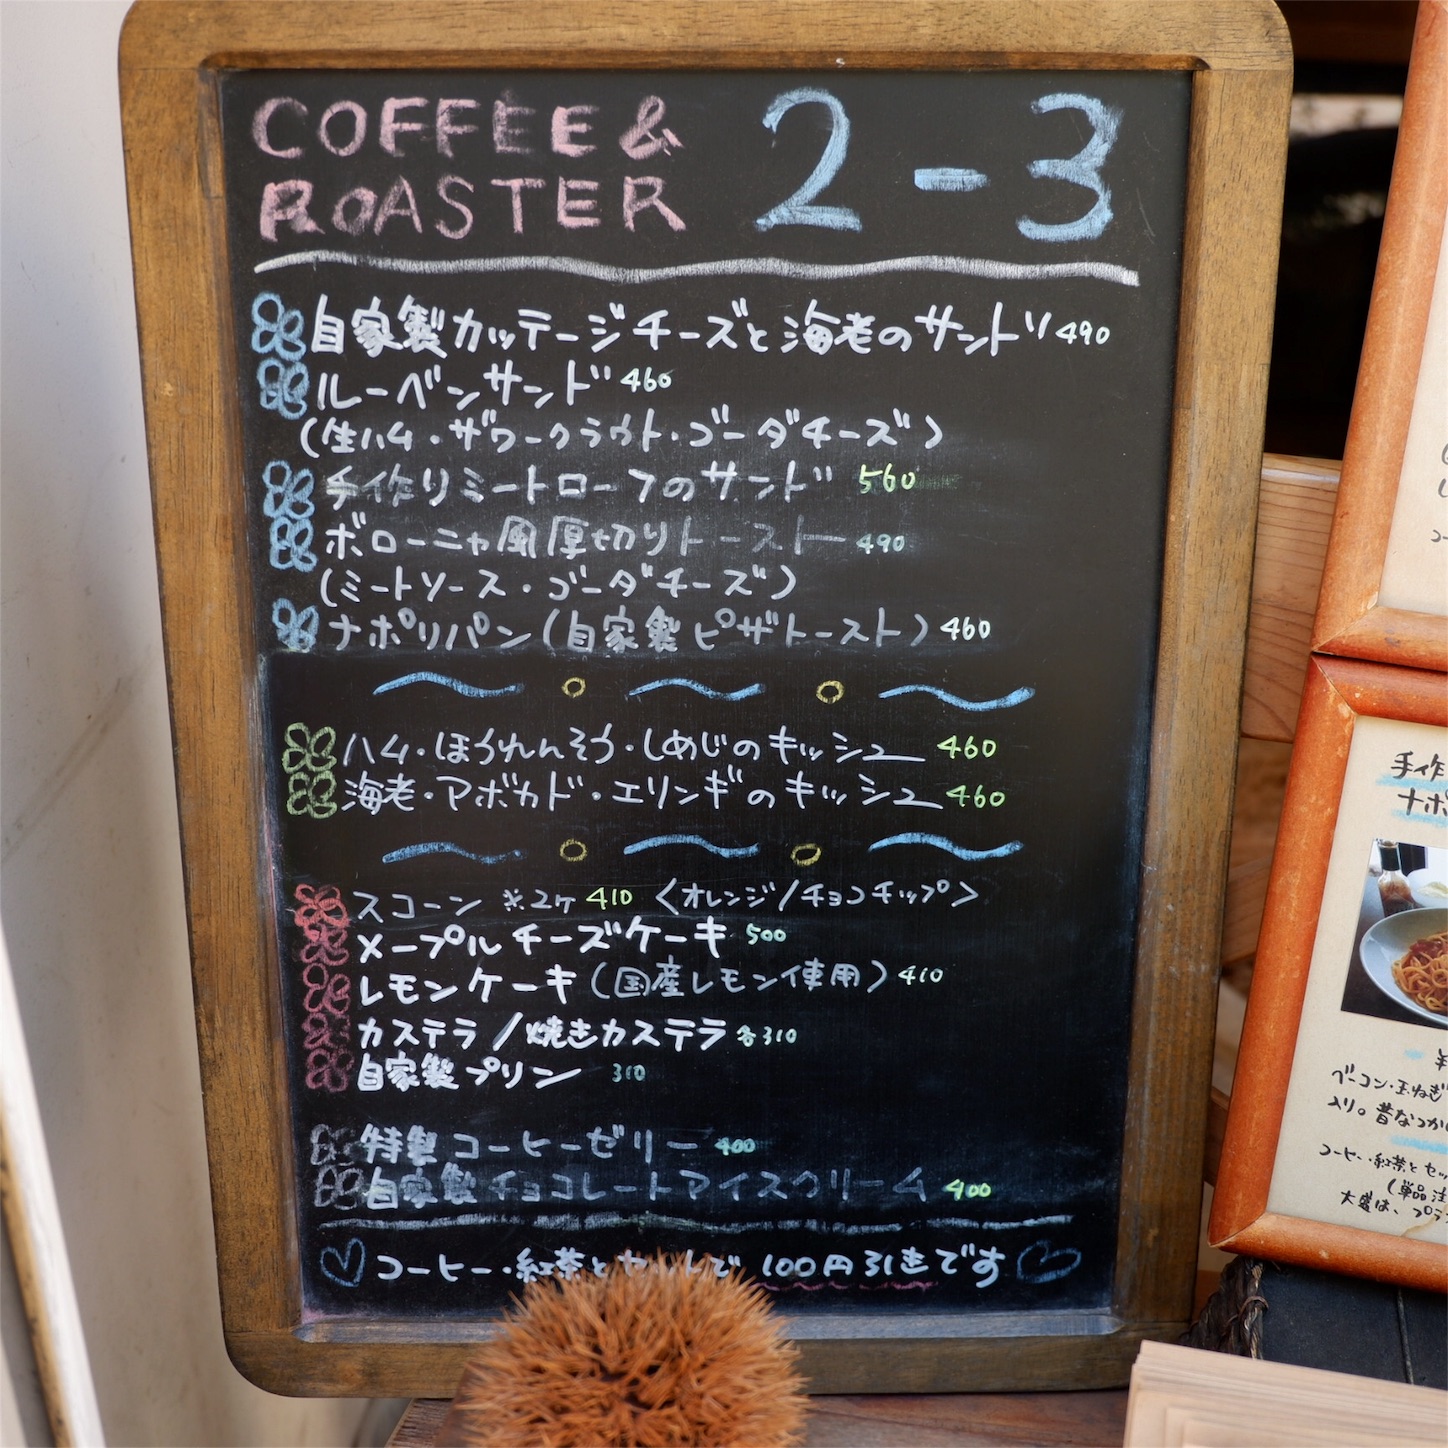 COFFEE &
ROASTER
2-3
自家製カッテージチーズと海老のサンド 490
ルーベンサンド 460
(生ハム・ザワークラウト・ゴーダチーズ)
手作りミートローフのサンド 560
ボローニャ風厚切りトースト 490
(ミートソース・ゴーダチーズ)
ナポリパン(自家製ピザトースト) 460
ハム・ほうれんそう・しめじのキッシュ 460
海老・アボカド・エリンギのキッシュ 460
スコーン ※2ヶ 410 〈オレンジ/チョコチップ〉
メープルチーズケーキ 500
レモンケーキ(国産レモン使用) 410
カステラ/焼きカステラ 各310
自家製プリン 310
特製コーヒーゼリー 400
自家製チョコレートアイスクリーム 400
コーヒー・紅茶とセットで100円引きです
手作
ナポ
ベーコン・玉ねぎ
入り。昔なつか
コーヒー・紅茶とセッ
(単品注
大盛は、プラ